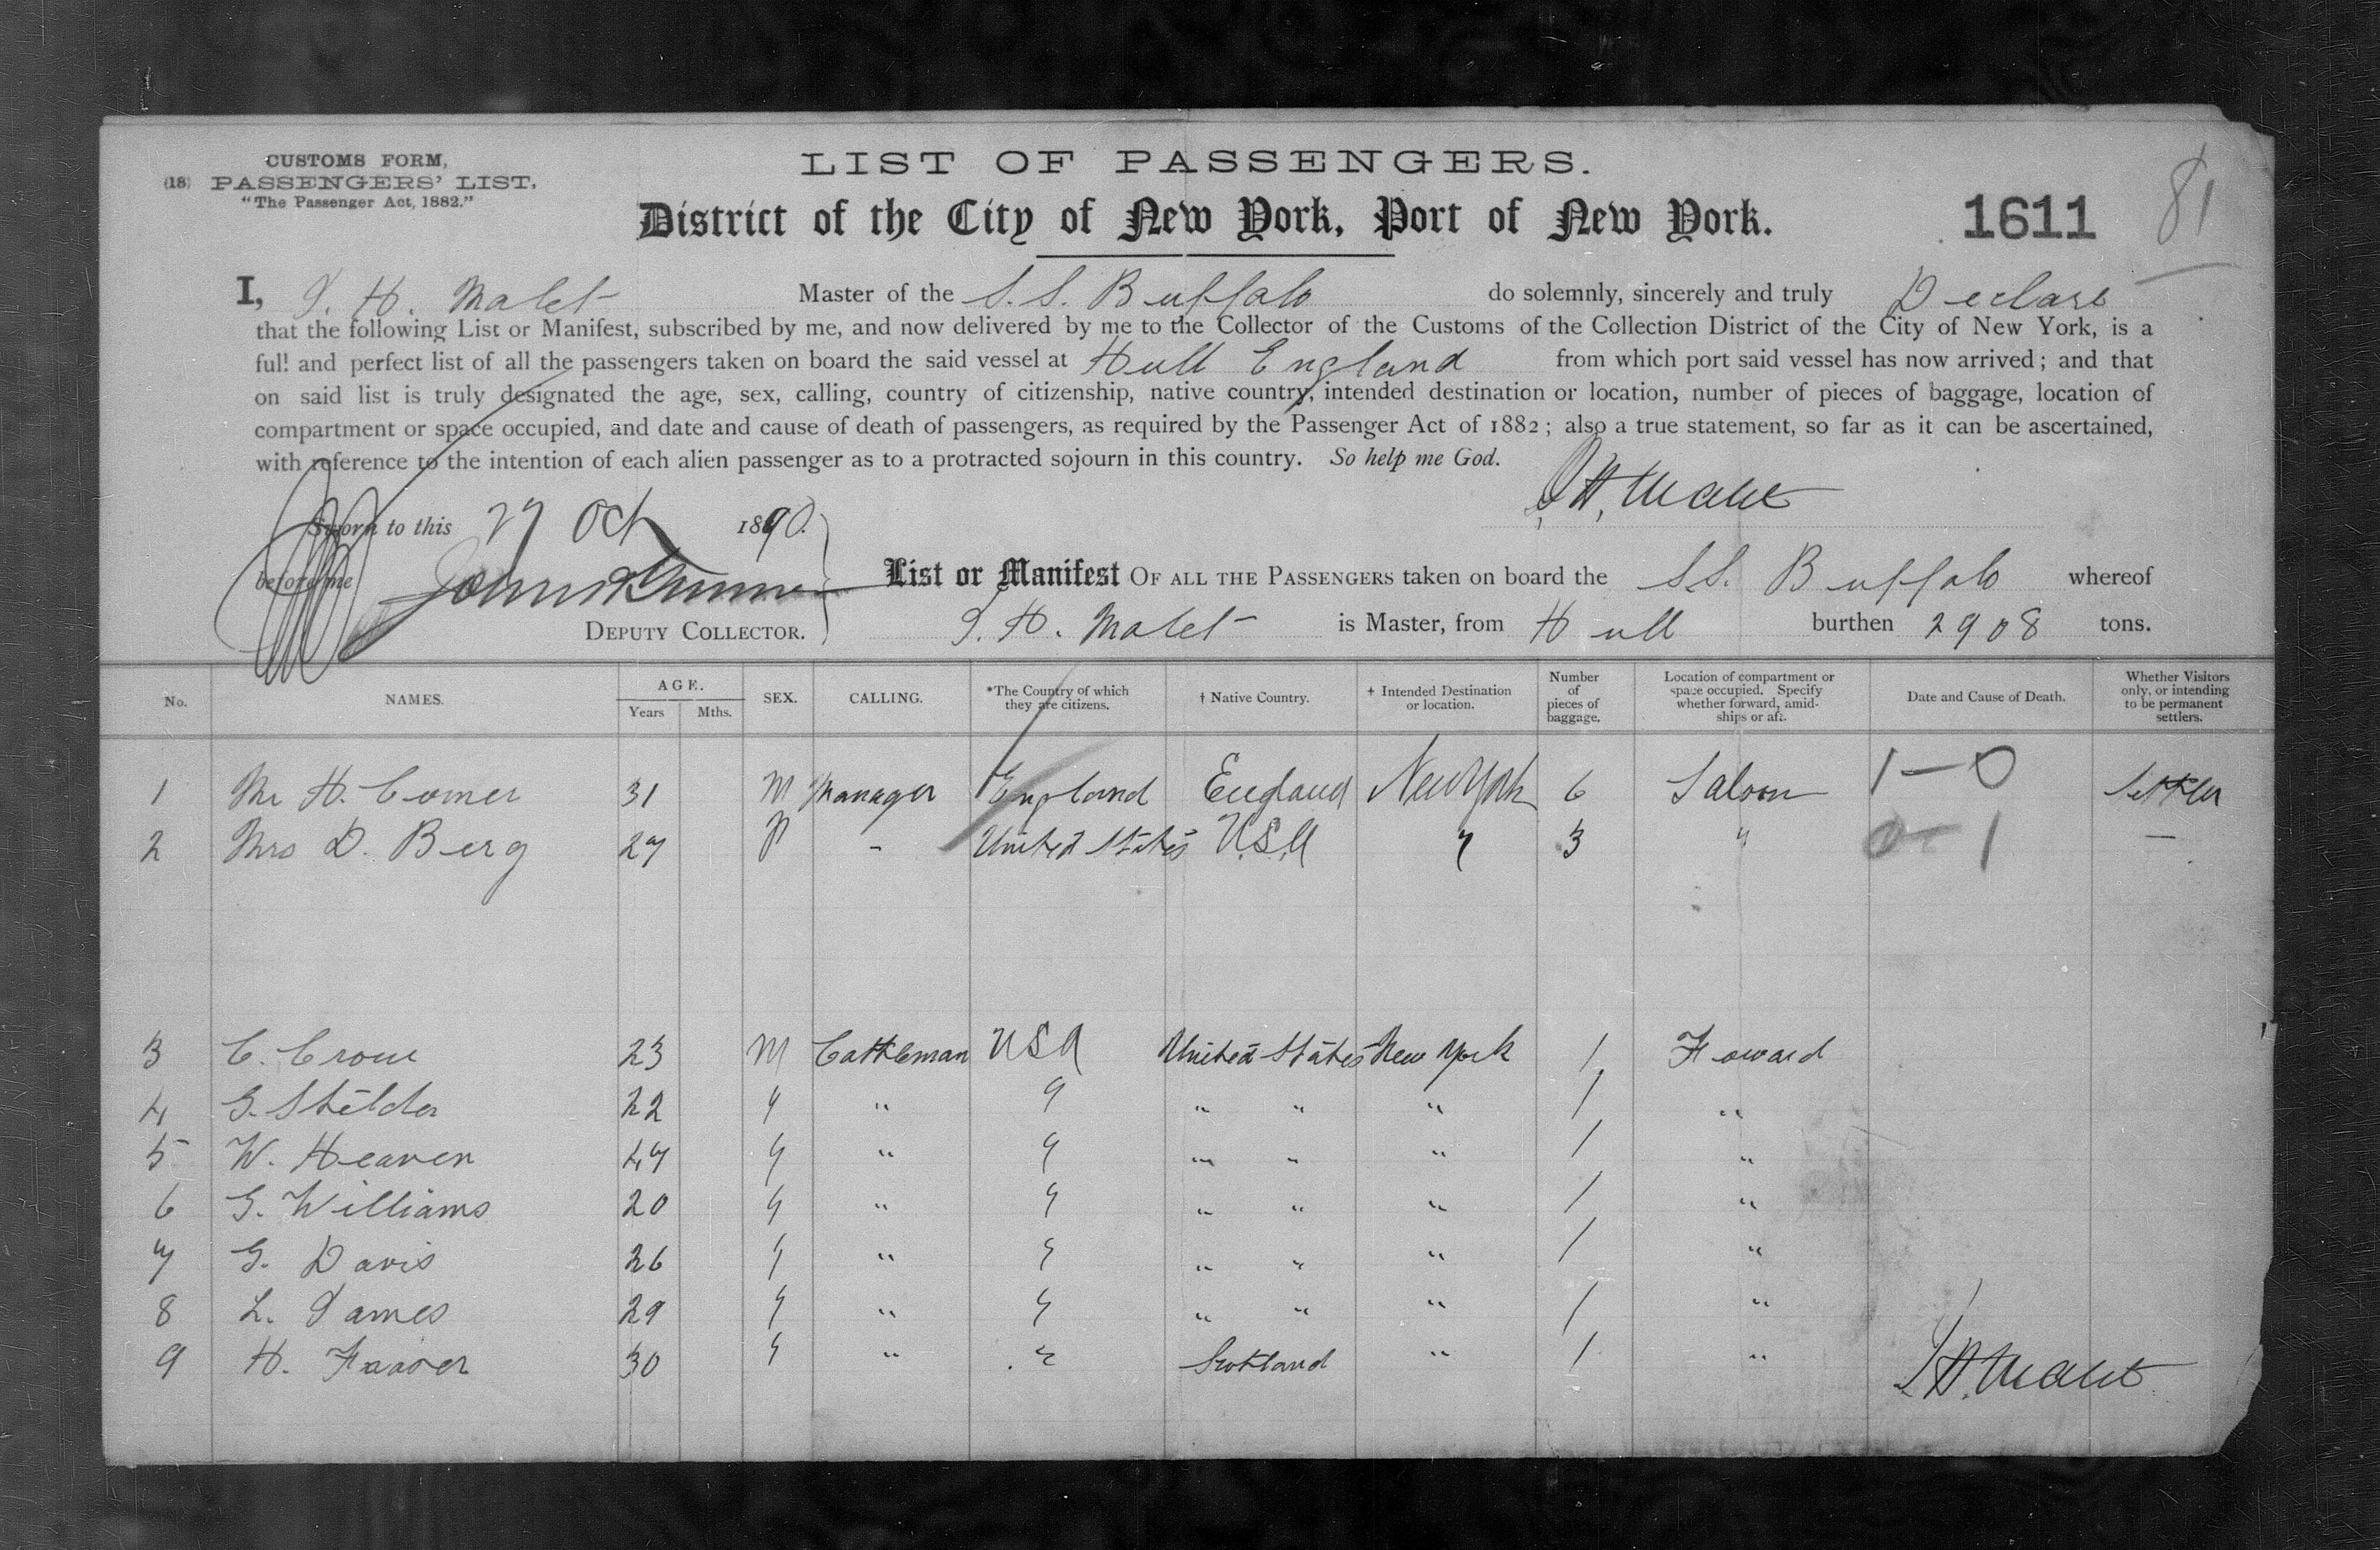 CUSTOMS FORM,
(18) PASSENGERS' LIST.
"The Passenger Act, 1882."
LIST OF PASSENGERS.
District of the City of New York, Port of New York.
1611
81
I, J. H. Malet Master of the S.S. Buffalo do solemnly, sincerely and truly Declare
that the following List or Manifest, subscribed by me, and now delivered by me to the Collector of the Customs of the Collection District of the City of New York, is a
full and perfect list of all the passengers taken on board the said vessel at Hull England from which port said vessel has now arrived; and that
on said list is truly designated the age, sex, calling, country of citizenship, native country, intended destination or location, number of pieces of baggage, location of
compartment or space occupied, and date and cause of death of passengers, as required by the Passenger Act of 1882; also a true statement, so far as it can be ascertained,
with reference to the intention of each alien passenger as to a protracted sojourn in this country. So help me God.
J. H. Malet
Sworn to this 27 Oct 1890.
before me
DEPUTY COLLECTOR.
List or Manifest OF ALL THE PASSENGERS taken on board the S.S. Buffalo whereof
J. H. Malet is Master, from Hull burthen 2908 tons.
No. NAMES. AGE. Years Mths. SEX. CALLING. *The Country of which they are citizens. † Native Country. † Intended Destination or location. Number of pieces of baggage. Location of compartment or space occupied. Specify whether forward, amidships or aft. Date and Cause of Death. Whether Visitors only, or intending to be permanent settlers.
1 Mr H. Comer 31 M Manager England England New York 6 Saloon 1-0 Settler
2 Mrs D. Berg 27 - United States U.S.A " 3 " 0-1 —
3 C. Crow 23 M Cattleman USA United States New York 1 Foward
4 G. Stelder 22 " " " " " " 1 "
5 W. Heaven 47 " " " " " " 1 "
6 G. Williams 20 " " " " " " 1 "
7 G. Davis 26 " " " " " " 1 "
8 L. James 29 " " " " " " 1 "
9 H. 30 " " " Scotland " 1 "
J. H. Malet